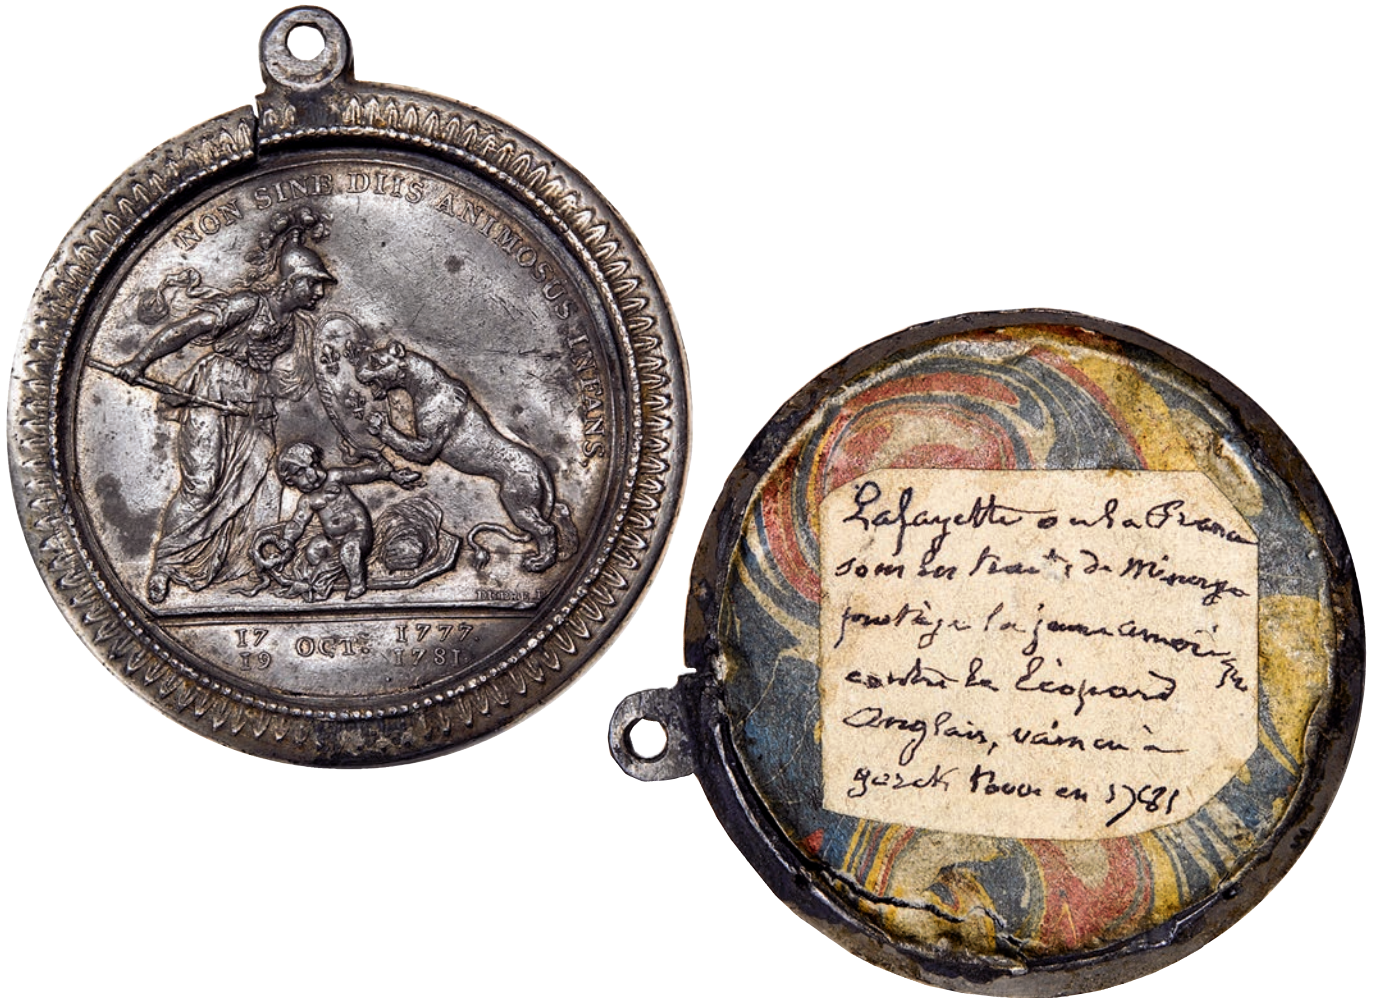 NON SINE DIIS ANIMOSUS INFANS.
17 OCT. 1777.
19 1781.
Lafayette ou la France
sous les traits de Minerve
protège la jeune Amérique
contre le léopard
Anglais, vaincu à
York town en 1781